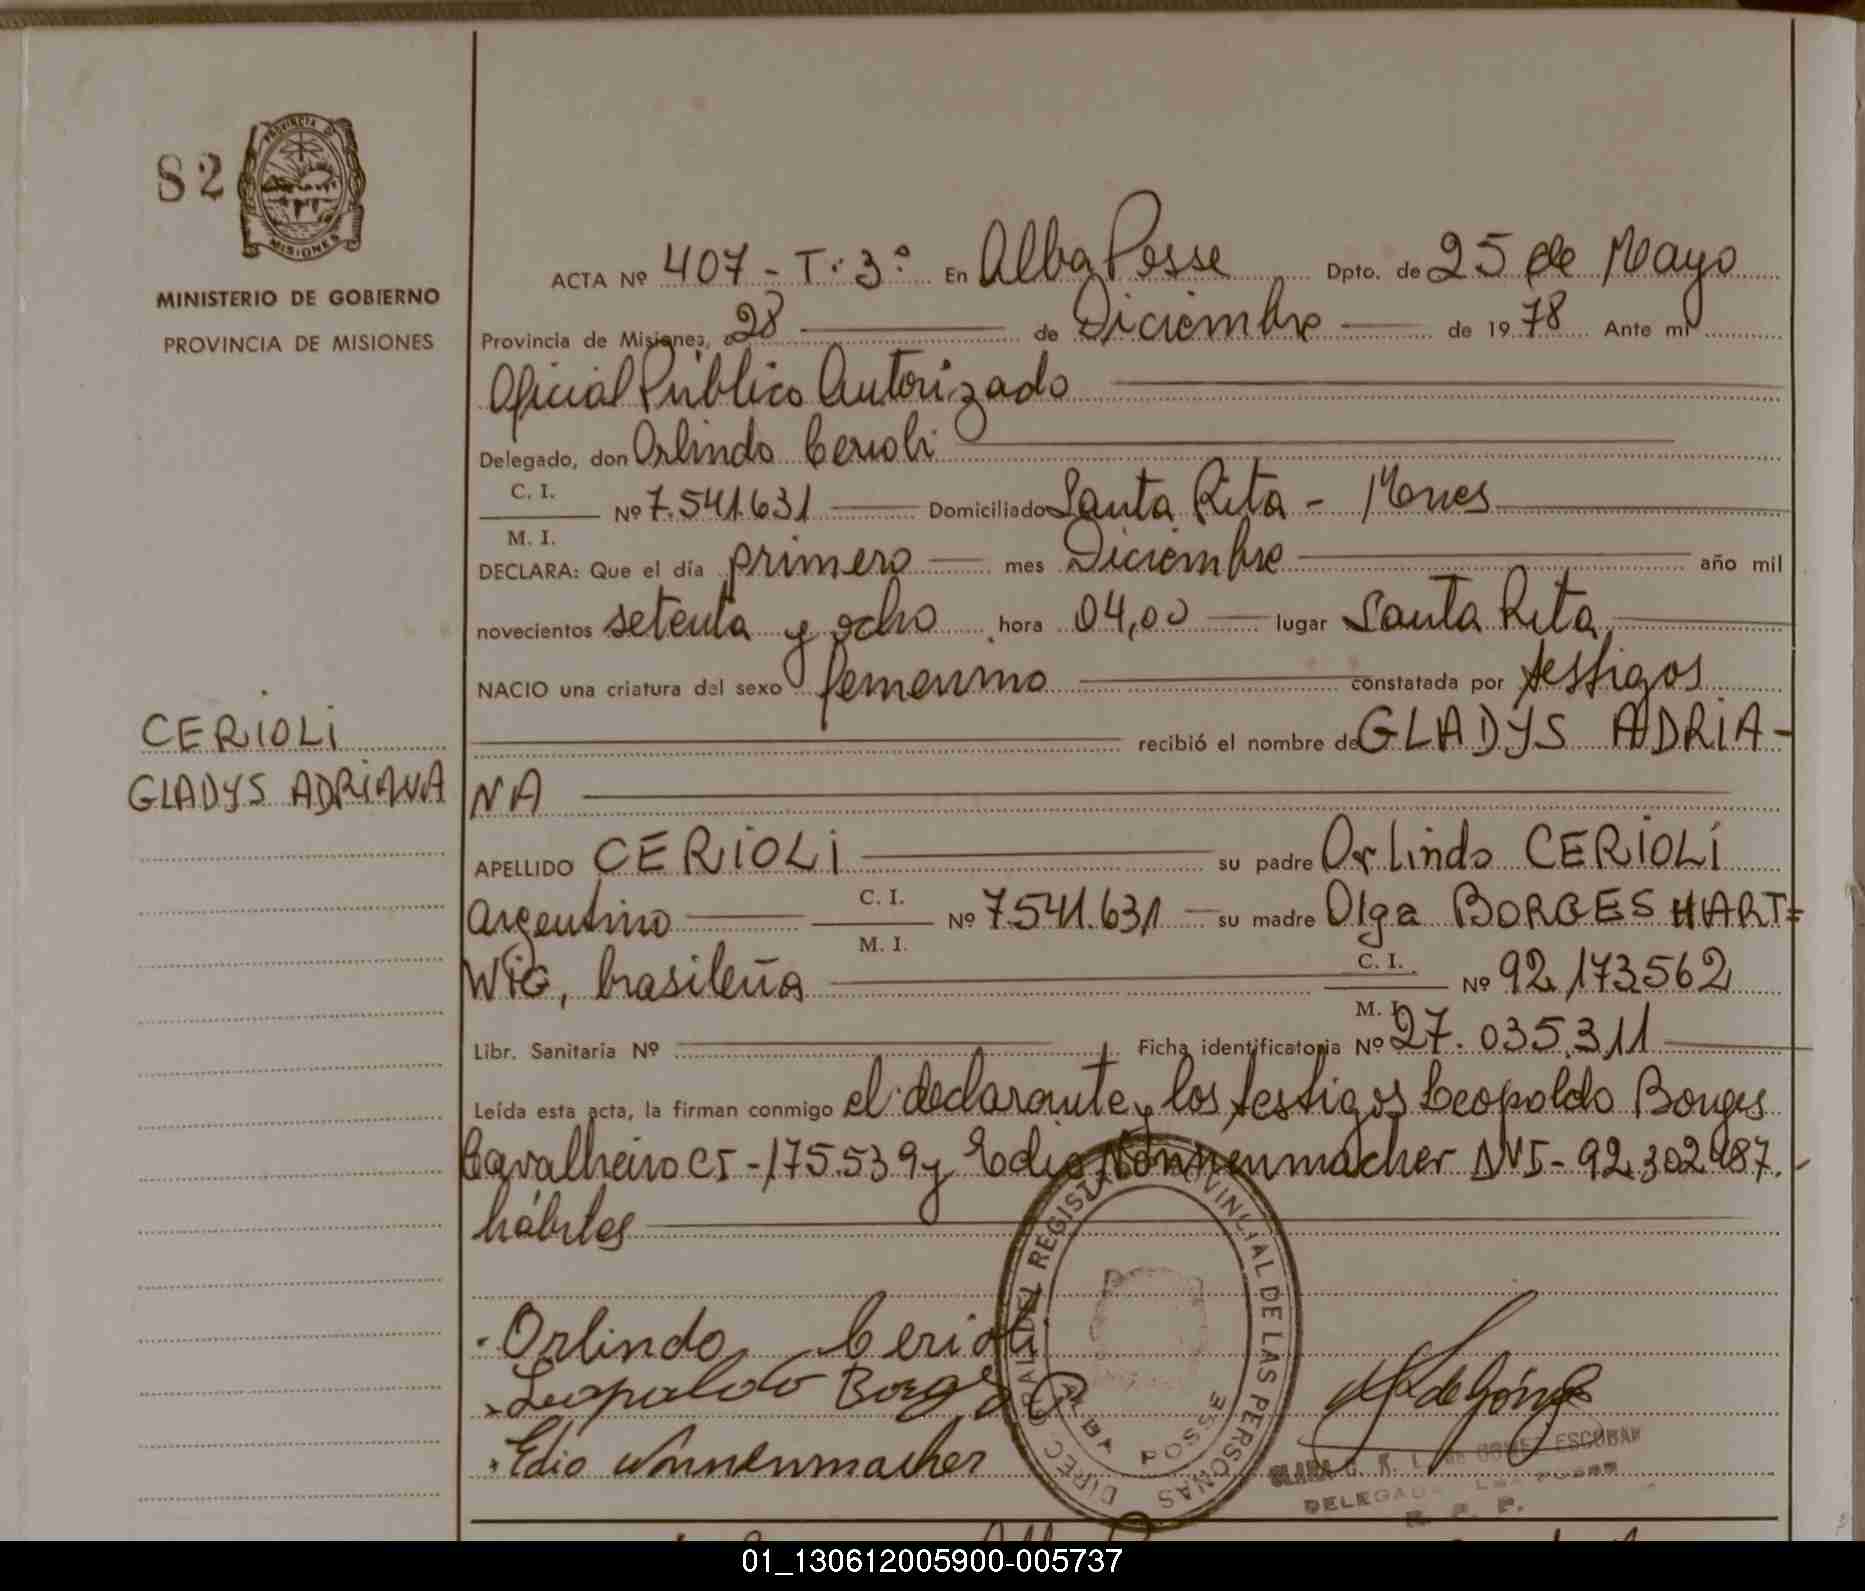 82
PROVINCIA DE
MISIONES
MINISTERIO DE GOBIERNO
PROVINCIA DE MISIONES
CERIOLI
GLADYS ADRIANA
ACTA Nº 407 - T. 3º En Alba Posse Dpto. de 25 de Mayo
Provincia de Misiones, a 28 de Diciembre de 1978 Ante mí
Oficial Público Autorizado
Delegado, don Orlindo Cerioli
C. I.
Nº 7.541.631 Domiciliado Santa Rita - Mnes
M. I.
DECLARA: Que el día primero mes Diciembre año mil
novecientos setenta y ocho hora 04,00 lugar Santa Rita
NACIO una criatura del sexo femenino constatada por testigos
recibió el nombre de GLADYS ADRIA-
NA
APELLIDO CERIOLI su padre Orlindo CERIOLI
argentino C. I. M. I. Nº 7.541.631 su madre Olga BORGES HART=
WIG, brasileña C. I. M. I. Nº 92.173.562
Libr. Sanitaria Nº Ficha identificatoria Nº 27.035.311
Leída esta acta, la firman conmigo el declarante y los testigos Leopoldo Borges
Cavalheiro CI - 175.539 y Edio Nonnenmacher DNI - 92.302.487.-
hábiles
Orlindo Cerioli
Leopoldo Borges C
Edio Nonnenmacher
DIREC. GRAL. DEL REGISTRO PROVINCIAL DE LAS PERSONAS
ALBA POSSE
DE GOMEZ ESCOBAR
DELEGADA
R. P. P.
01_130612005900-005737